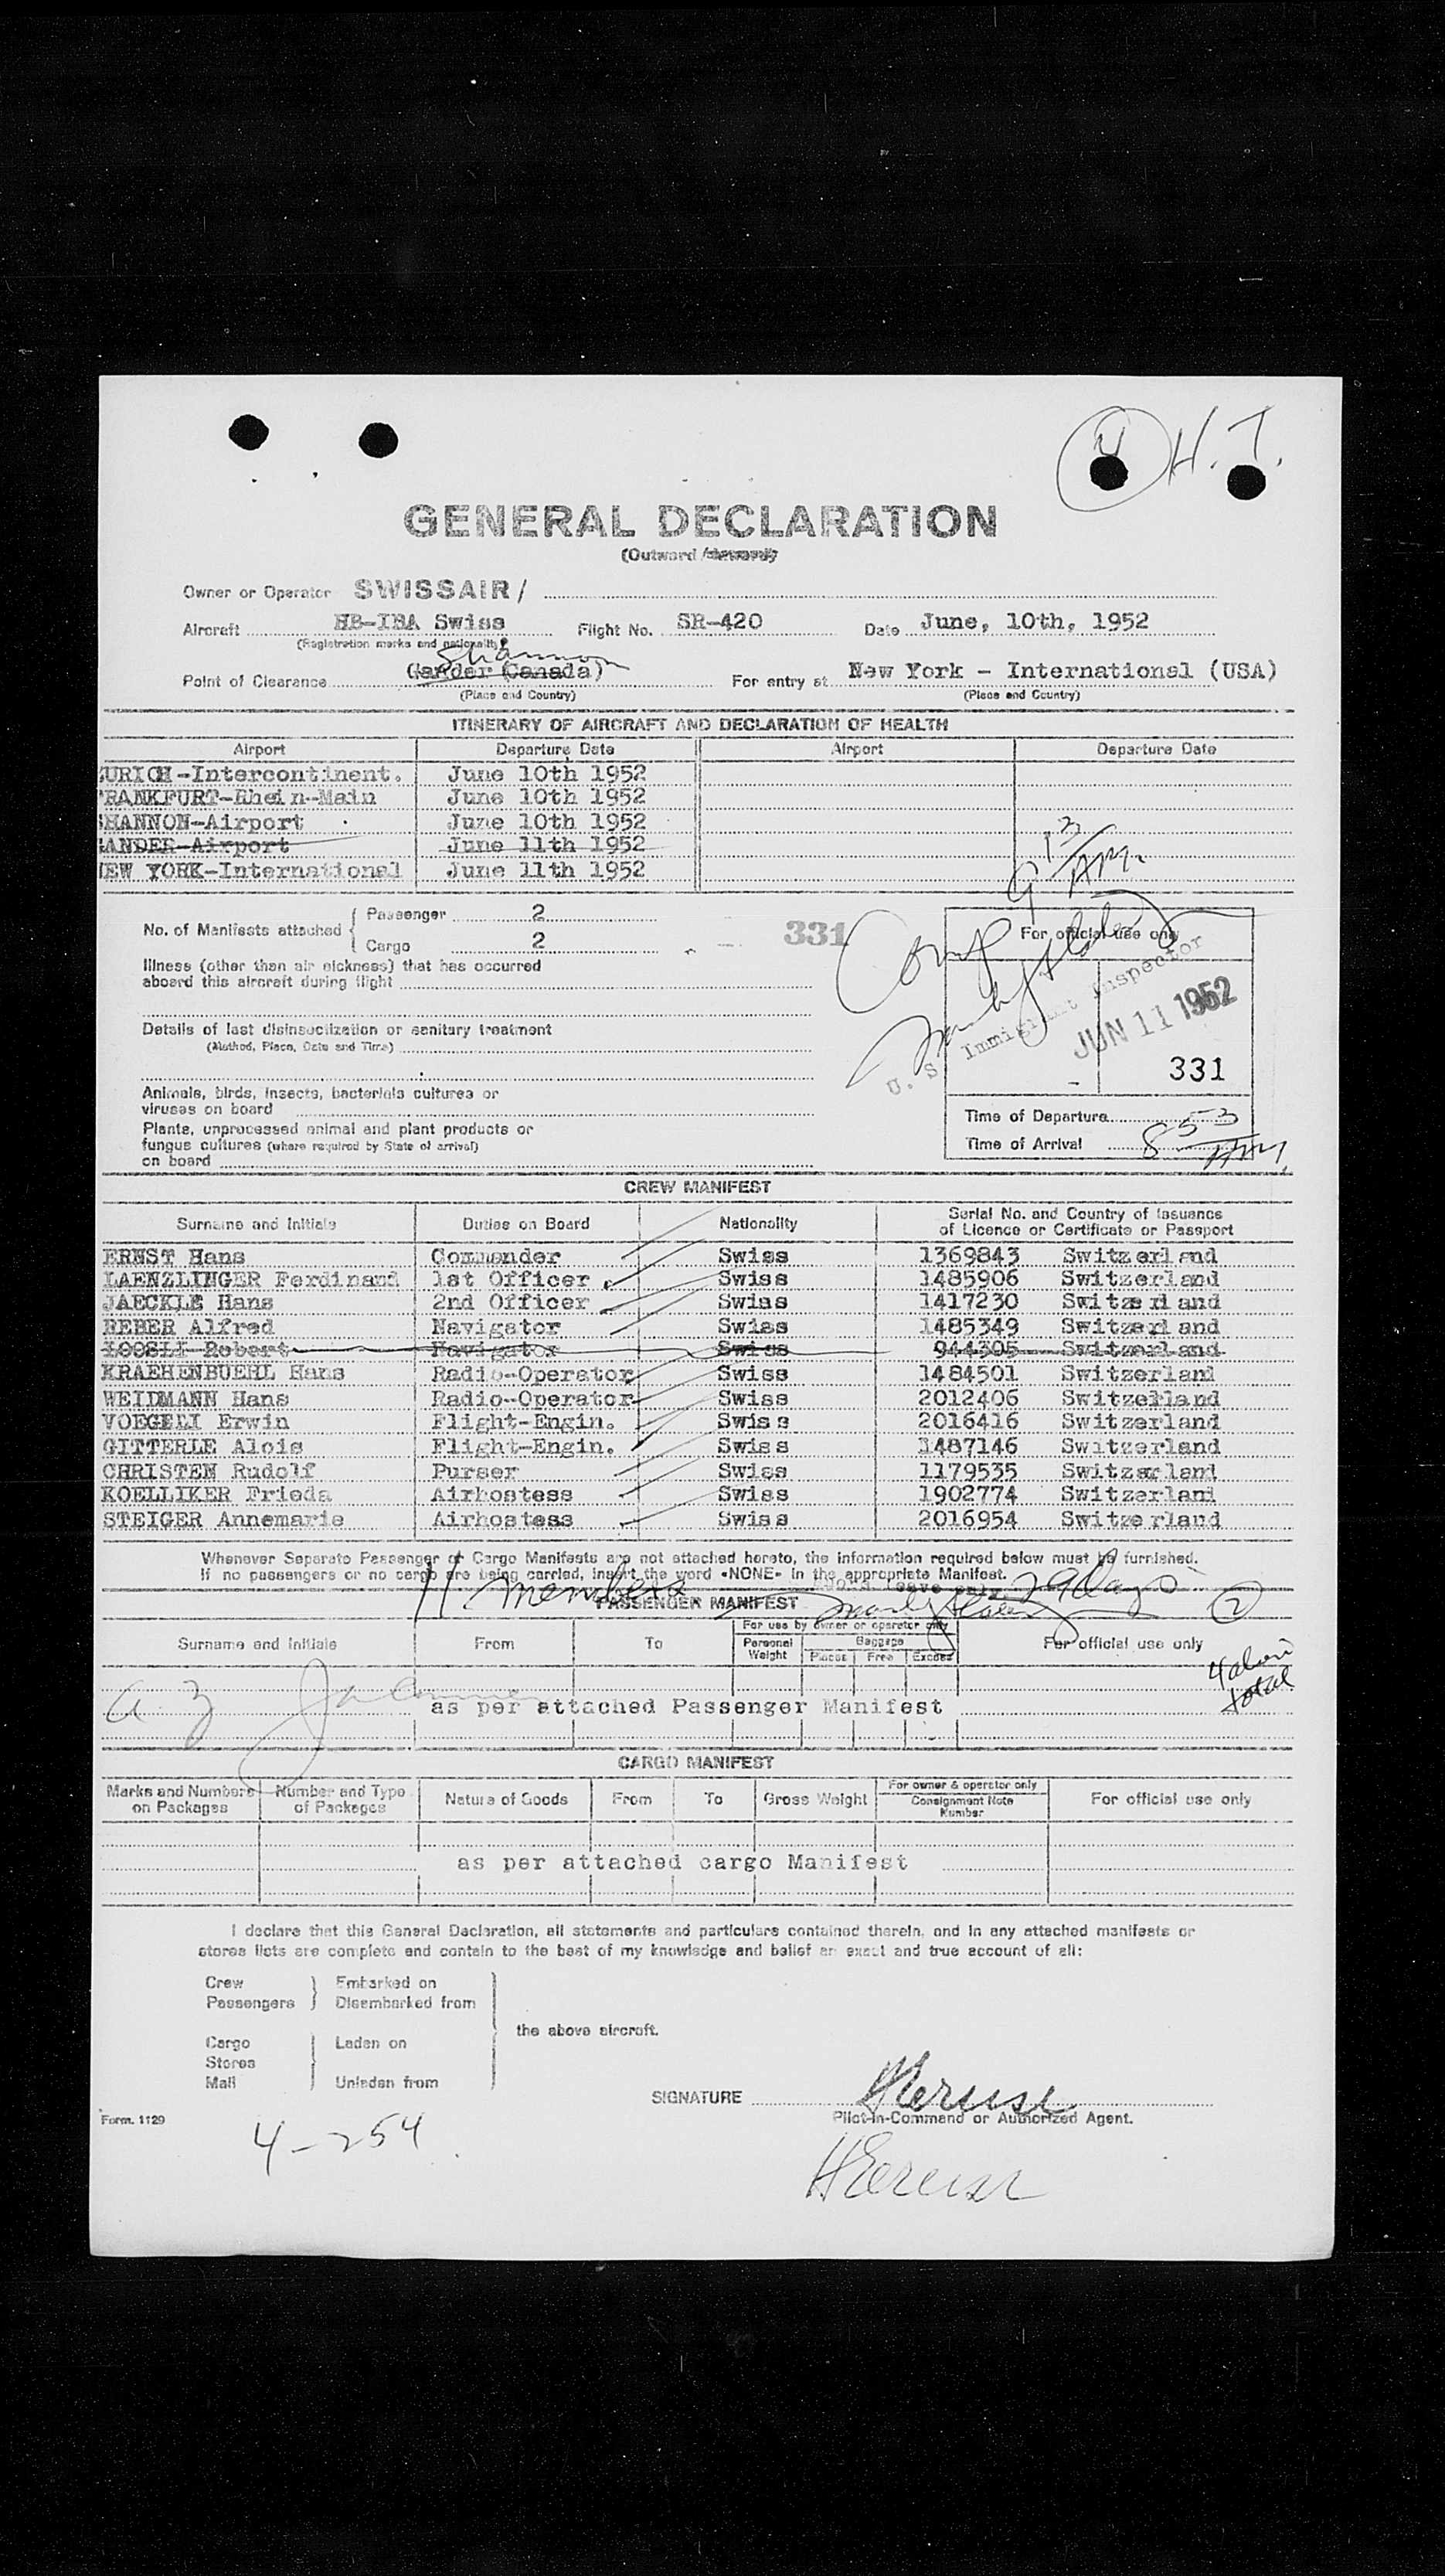 4 H. T.
GENERAL DECLARATION
(Outward /Inward)
Owner or Operator SWISSAIR /
Aircraft HB-IBA Swiss Flight No. SR-420 Date June, 10th, 1952
(Registration marks and nationality)
Shannon
Point of Clearance Gander (Canada) For entry at New York - International (USA)
(Place and Country) (Place and Country)
ITINERARY OF AIRCRAFT AND DECLARATION OF HEALTH
Airport Departure Date Airport Departure Date
URICH-Intercontinent. June 10th 1952
RANKFURT-Rhein-Main June 10th 1952
HANNON-Airport June 10th 1952
ANDER-Airport June 11th 1952
EW YORK-International June 11th 1952
9 13 AM.
No. of Manifests attached Passenger 2
Cargo 2
331
For official use only
Illness (other than air sickness) that has occurred
aboard this aircraft during flight
U. S. Immigrant Inspector
JUN 11 1952
331
Details of last disinsectization or sanitary treatment
(Method, Place, Date and Time)
Animals, birds, insects, bacterials cultures or
viruses on board
Plants, unprocessed animal and plant products or
fungus cultures (where required by State of arrival)
on board
Time of Departure
Time of Arrival 8 53 AM.
CREW MANIFEST
Surname and Initials Duties on Board Nationality Serial No. and Country of Issuance
of Licence or Certificate or Passport
ERNST Hans Commander Swiss 1369843 Switzerland
LAENZLINGER Ferdinand 1st Officer Swiss 1485906 Switzerland
JAECKLE Hans 2nd Officer Swiss 1417230 Switzerland
REBER Alfred Navigator Swiss 1485349 Switzerland
LOOSLI Robert Navigator Swiss 944305 Switzerland
KRAEHENBUEHL Hans Radio-Operator Swiss 1484501 Switzerland
WEIDMANN Hans Radio-Operator Swiss 2012406 Switzerland
VOEGELI Erwin Flight-Engin. Swiss 2016416 Switzerland
GITTERLE Alois Flight-Engin. Swiss 1487146 Switzerland
CHRISTEN Rudolf Purser Swiss 1179535 Switzerland
KOELLIKER Frieda Airhostess Swiss 1902774 Switzerland
STEIGER Annemarie Airhostess Swiss 2016954 Switzerland
Whenever Separate Passenger or Cargo Manifests are not attached hereto, the information required below must be furnished.
If no passengers or no cargo are being carried, insert the word «NONE» in the appropriate Manifest.
11 members 29 days 2
PASSENGER MANIFEST
Surname and Initials From To For use by owner or operator only For official use only
Personal Weight Baggage
Pieces Free Excess
4 alien
total
as per attached Passenger Manifest
CARGO MANIFEST
Marks and Numbers on Packages Number and Type of Packages Nature of Goods From To Gross Weight For owner & operator only
Consignment Note Number For official use only
as per attached cargo Manifest
I declare that this General Declaration, all statements and particulars contained therein, and in any attached manifests or
stores lists are complete and contain to the best of my knowledge and belief an exact and true account of all:
Crew Embarked on
Passengers Disembarked from
the above aircraft.
Cargo Laden on
Stores
Mail Unladen from
SIGNATURE
Pilot-in-Command or Authorized Agent.
Form. 1129
4-254